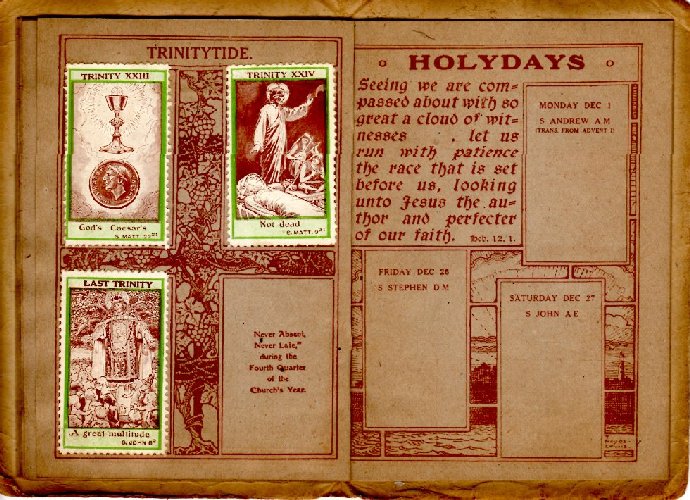 TRINITYTIDE.
TRINITY XXIII
God's Caesar's
TRINITY XXIV
Not dead
LAST TRINITY
A great multitude
Never Absent,
Never Late,"
during the
Fourth Quarter
of the
Church's Year.
HOLYDAYS
Seeing we are com=
passed about with so
great a cloud of wit=
nesses . let us
run with patience
the race that is set
before us, looking
unto Jesus the au=
thor and perfecter
of our faith. Heb. 12. 1.
MONDAY DEC 1
S ANDREW A M
(TRANS. FROM ADVENT I)
FRIDAY DEC 26
S STEPHEN D M
SATURDAY DEC 27
S JOHN A E